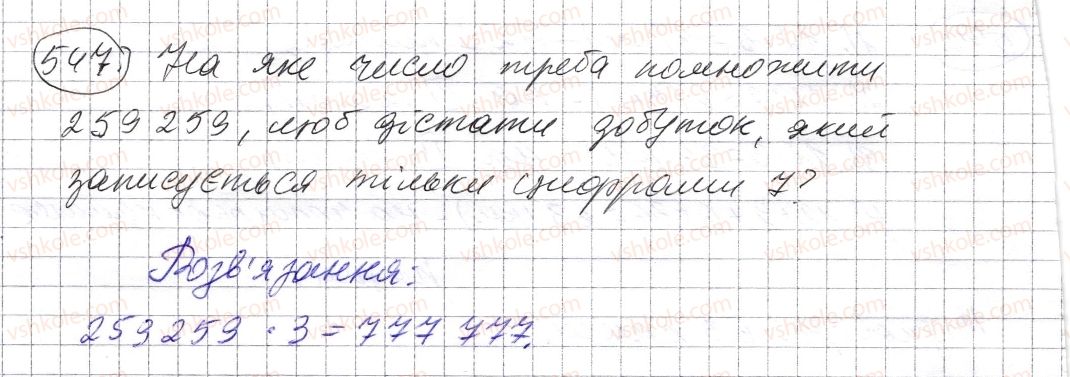 547. На яке число треба помножити
259 259, щоб дістати добуток, який
записується тільки цифрами 7?
Розв'язання:
259 259 · 3 = 777 777.